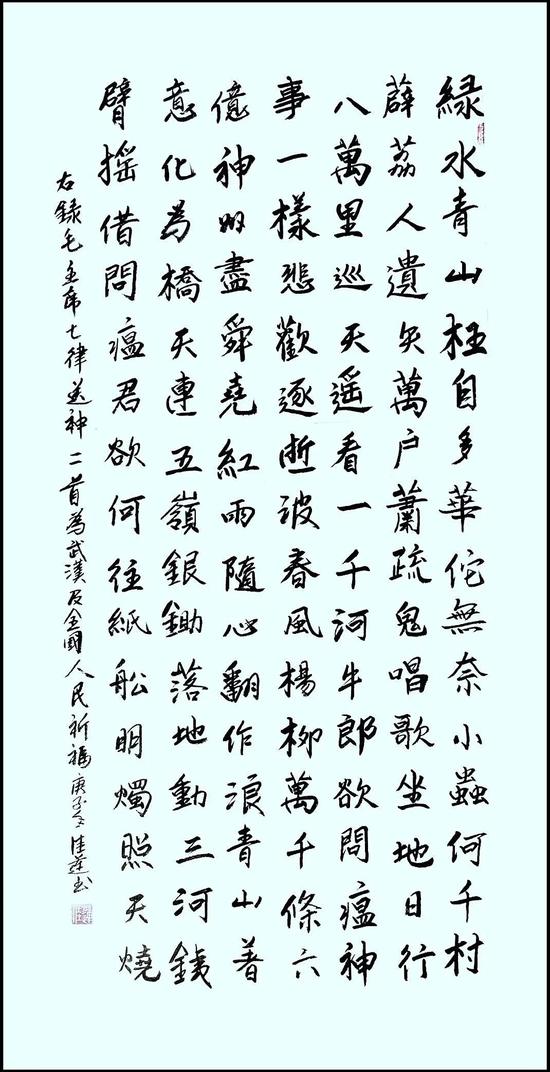 緑水青山枉自多華佗無奈小蟲何千村
薜荔人遺矢萬户蕭疏鬼唱歌坐地日行
八萬里巡天遥看一千河牛郎欲問瘟神
事一樣悲歡逐逝波春風楊柳萬千條六
億神州盡舜堯紅雨隨心翻作浪青山著
意化為橋天連五嶺銀鋤落地動三河鐵
臂摇借問瘟君欲何往紙船明燭照天燒
右録毛主席七律送神二首為武漢及全國人民祈福庚子书